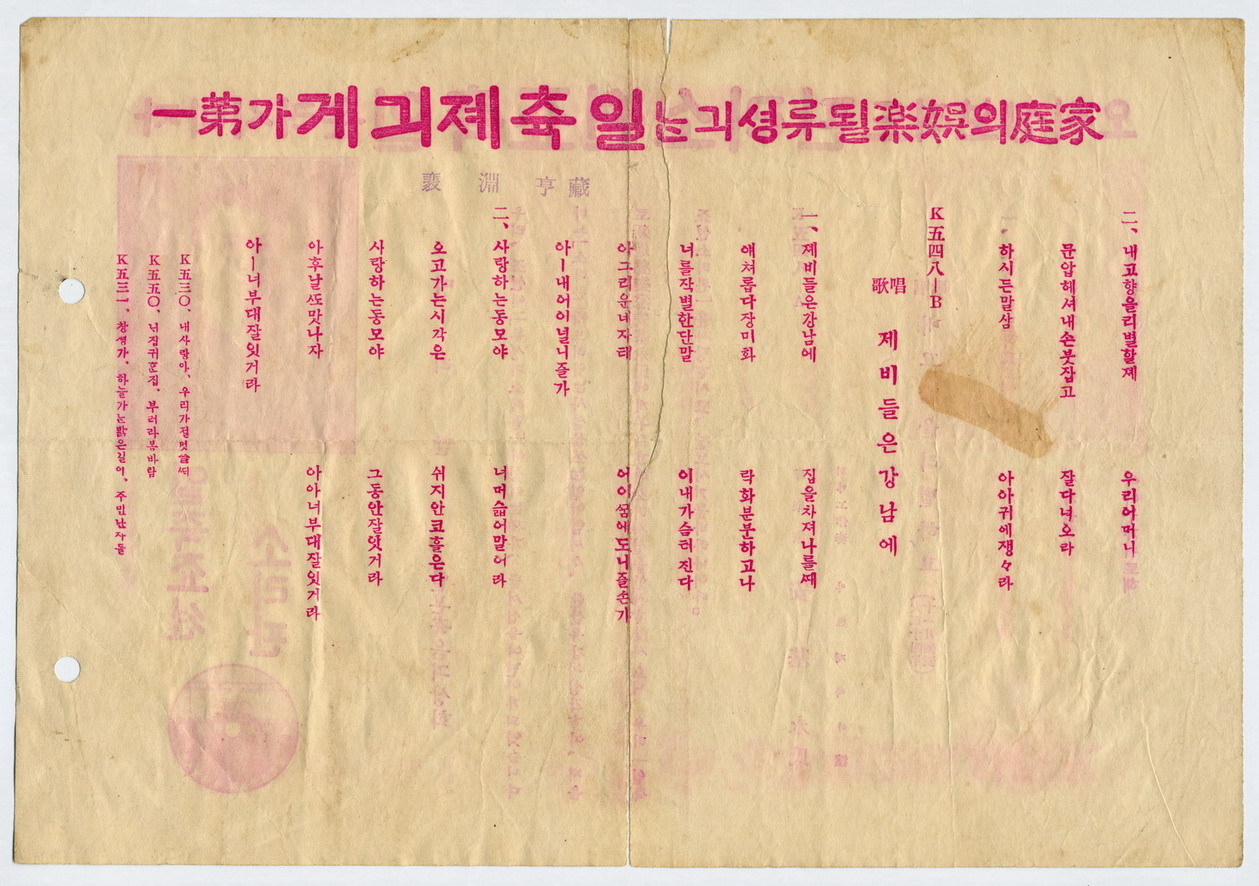 家庭의娯楽될류셩긔는일츅졔긔게가第一
藏亨淵襄
二、내고향을리별할졔 우리어머니
문압헤셔내손붓잡고 잘다녀오라
하시든말삼 아아귀에쟁々라
K五四八—B
歌唱 제비들은강남에
一、제비들은강남에 집을차져나를때
얘쳐롭다장미화 락화분분하고나
너를작별한단말 이내가슴러진다
아그리운녀자태 어이꿈에도니즐손가
아—내어이널니즐가
二、사랑하는동모야 너머슯어말어라
오고가는시각은 쉬지안코흘은다
사랑하는동모야 그동안잘잇거라
아후날또맛나자 아아너부대잘잇거라
아—너부대잘잇거라
K五三〇、내사랑아、우리가졀멋슬때
K五五〇、넌징귀훈집、부러라봄바람
K五三一、창셩가、하늘가는밝은길이、주민난자들